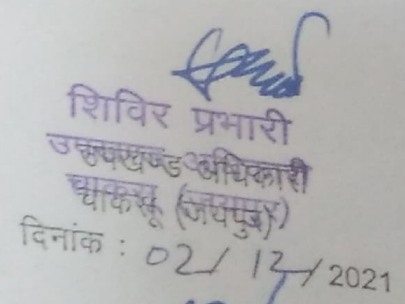 शिविर प्रभारी
उपखण्ड अधिकारी
चाकसू (जयपुर)
दिनांक : 02/12/2021